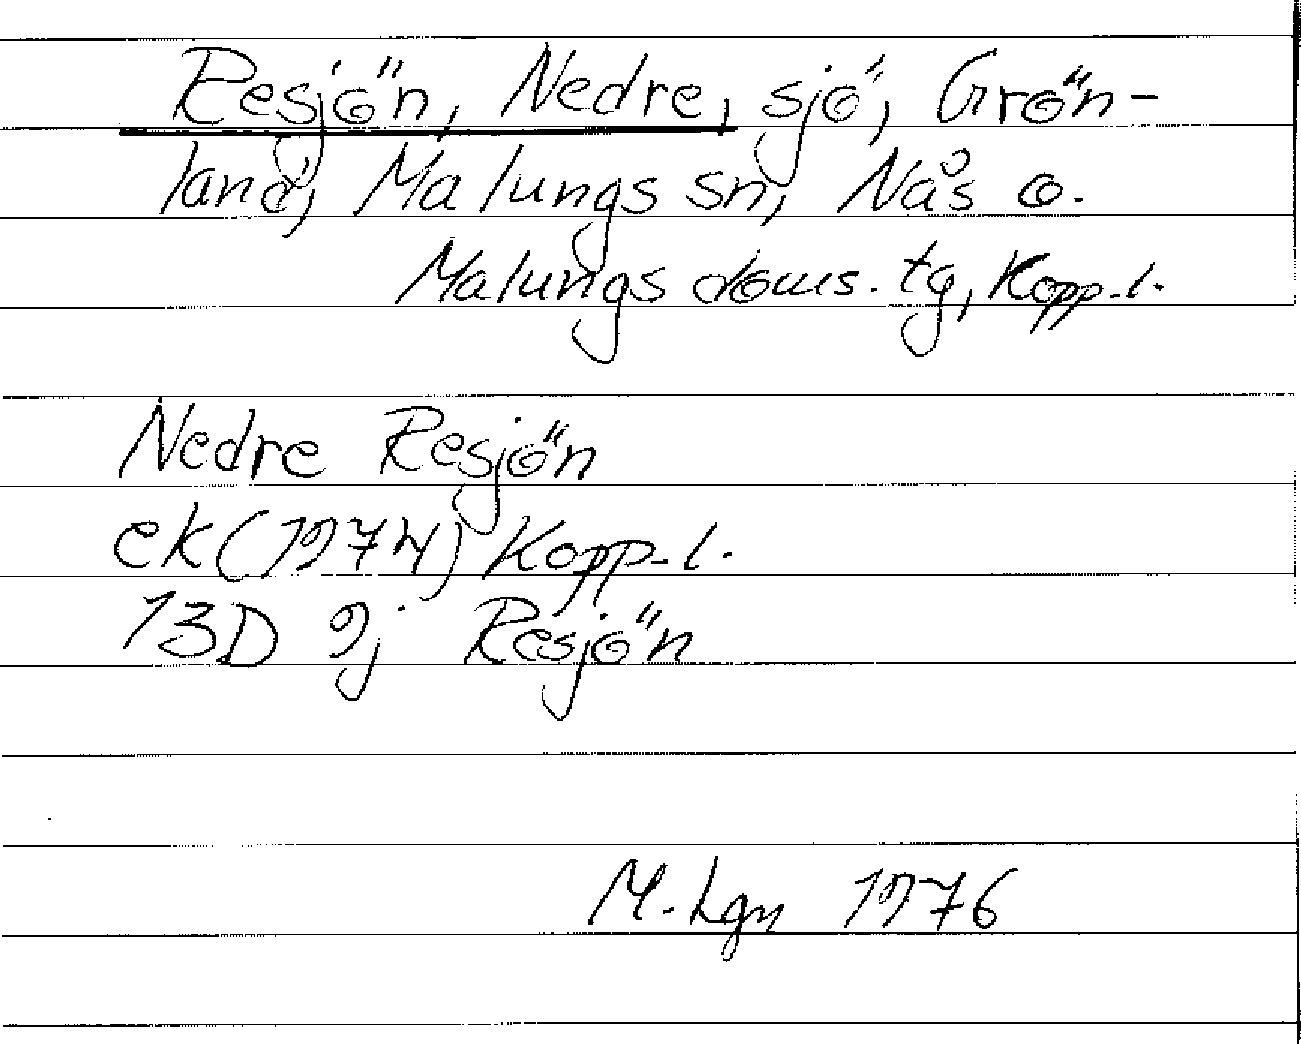 Resjön, Nedre, sjö, Grön-
land, Malungs sn, Nås o.
Malungs doms. tg, Kopp. l.
Nedre Resjön
ek (1974) Kopp. l.
13D 9j Resjön
M. Lgn 1976